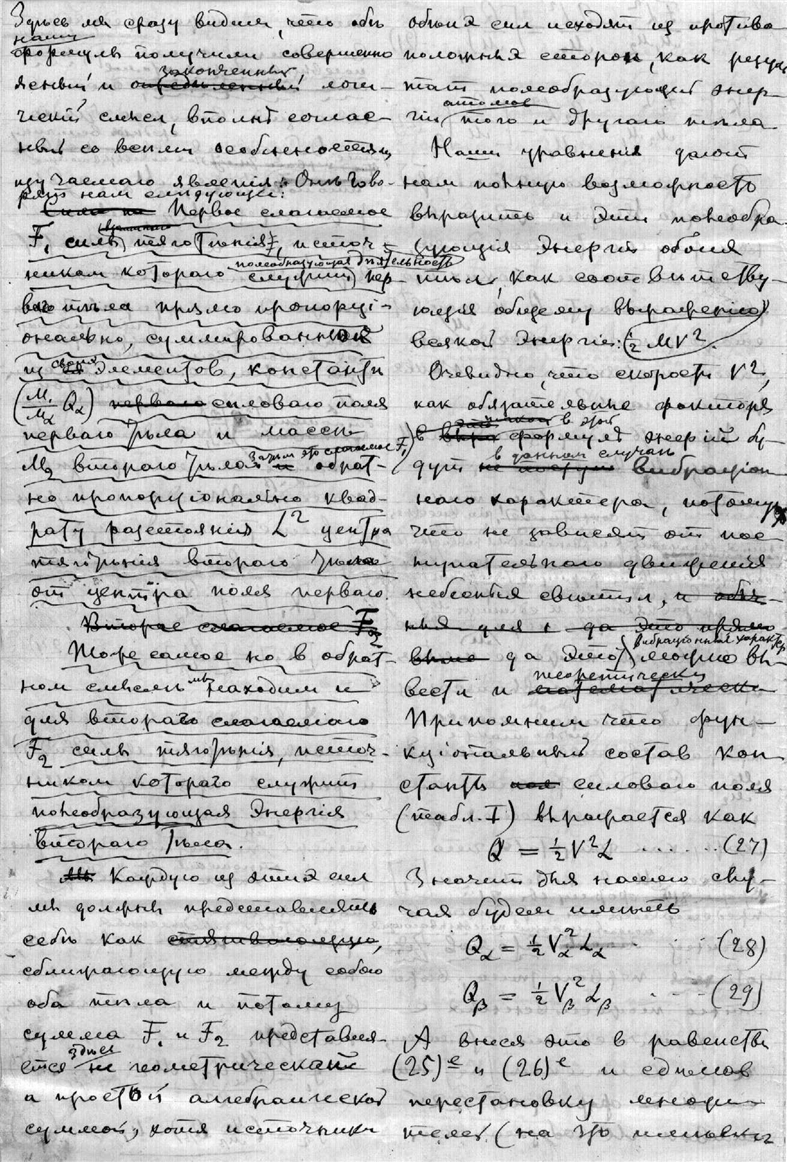 Здесь мы сразу видим, что обе
наши
формулы получили совершенно
законченный
ясный и определенный логи-
ческий смысл, вполне соглас-
ный со всеми особенностями
изучаемаго явления. Оне гово-
рят нам следующее:
Сила на Первое слагаемое
F₁ силы тяготѣнія, источ-
никам котораго полеобразующая дѣятельность служит пер-
ваго тѣла прямо пропорці-
онально, суммированной
из своих элементов, константѣ
(M₁/Mα Qα) перваго силоваго поля
перваго тѣла и массы
M₂ втораго тѣла. Затем это слагаемое F₁ обрат-
но пропорціонально квад-
рату разстоянія L² центра
тяготѣнія втораго тѣла
от центра поля перваго.
Второе слагаемое F₂
Тоже самое но в обрат-
ном смысле мы находим и
для втораго слагаемаго
F₂ силы тяготѣнія, источ-
ником котораго служит
полеобразующая Энергія
втораго тѣла.
Мы Каждую из этих сил
мы должны представлять
себѣ как стягивающую,
сближающую между собою
оба тѣла и потому
сумма F₁ и F₂ представля-
ется здесь не геометрической
а простой алгебраической
суммой, хотя источники
обоих сил исходят из противо
положных сторон, как резуль
тат полеобразующей энер-
гии атомов того и другаго тѣла
Наши уравнения дают
нам полную возможность
выразить и эти полеобра
зующія Энергіи обоих
тѣл, как соответству-
ющія общему выраженію
всякой Энергіи: (½ MV².
Очевидно, что скорости V²,
как обязательные факторы
в этой
в формулѣ энергій бу-
в данном случаѣ
дут не вибраціон
наго характера, потому
что не зависят от пос
тупательнаго движения
небесных свѣтил, и обы-
да это прямо
вибраціонный характер
выше да это можно вы-
теоретически
вести и математически
Припомним что функ-
кціональный состав кон
стант поля силоваго поля
(табл. I) выражается как
Q = ½ V²L . . . . . (27)
Значит для нашего слу-
чая будем имѣть
Qα = ½ Vα² Lα . . . . (28)
Qβ = ½ Vβ² Lβ . . . . (29)
А внеся это в равенства
(25)ᵉ и (26)ᵉ и сдѣлав
перестановку множи-
телей (на это